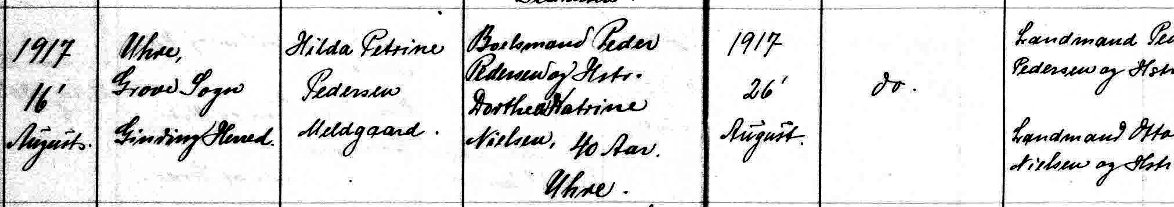 1917
16'
August.
Uhre,
Grove Sogn
Ginding Herred.
Hilda Petrine
Pedersen
Meldgaard.
Boelsmand Peder
Pedersen og Hstr.
Dorthea Katrine
Nielsen, 40 Aar.
Uhre.
1917
26'
August.
do.
Landmand Ped
Pedersen og Hstr
Landmand Otto
Nielsen og Hstr